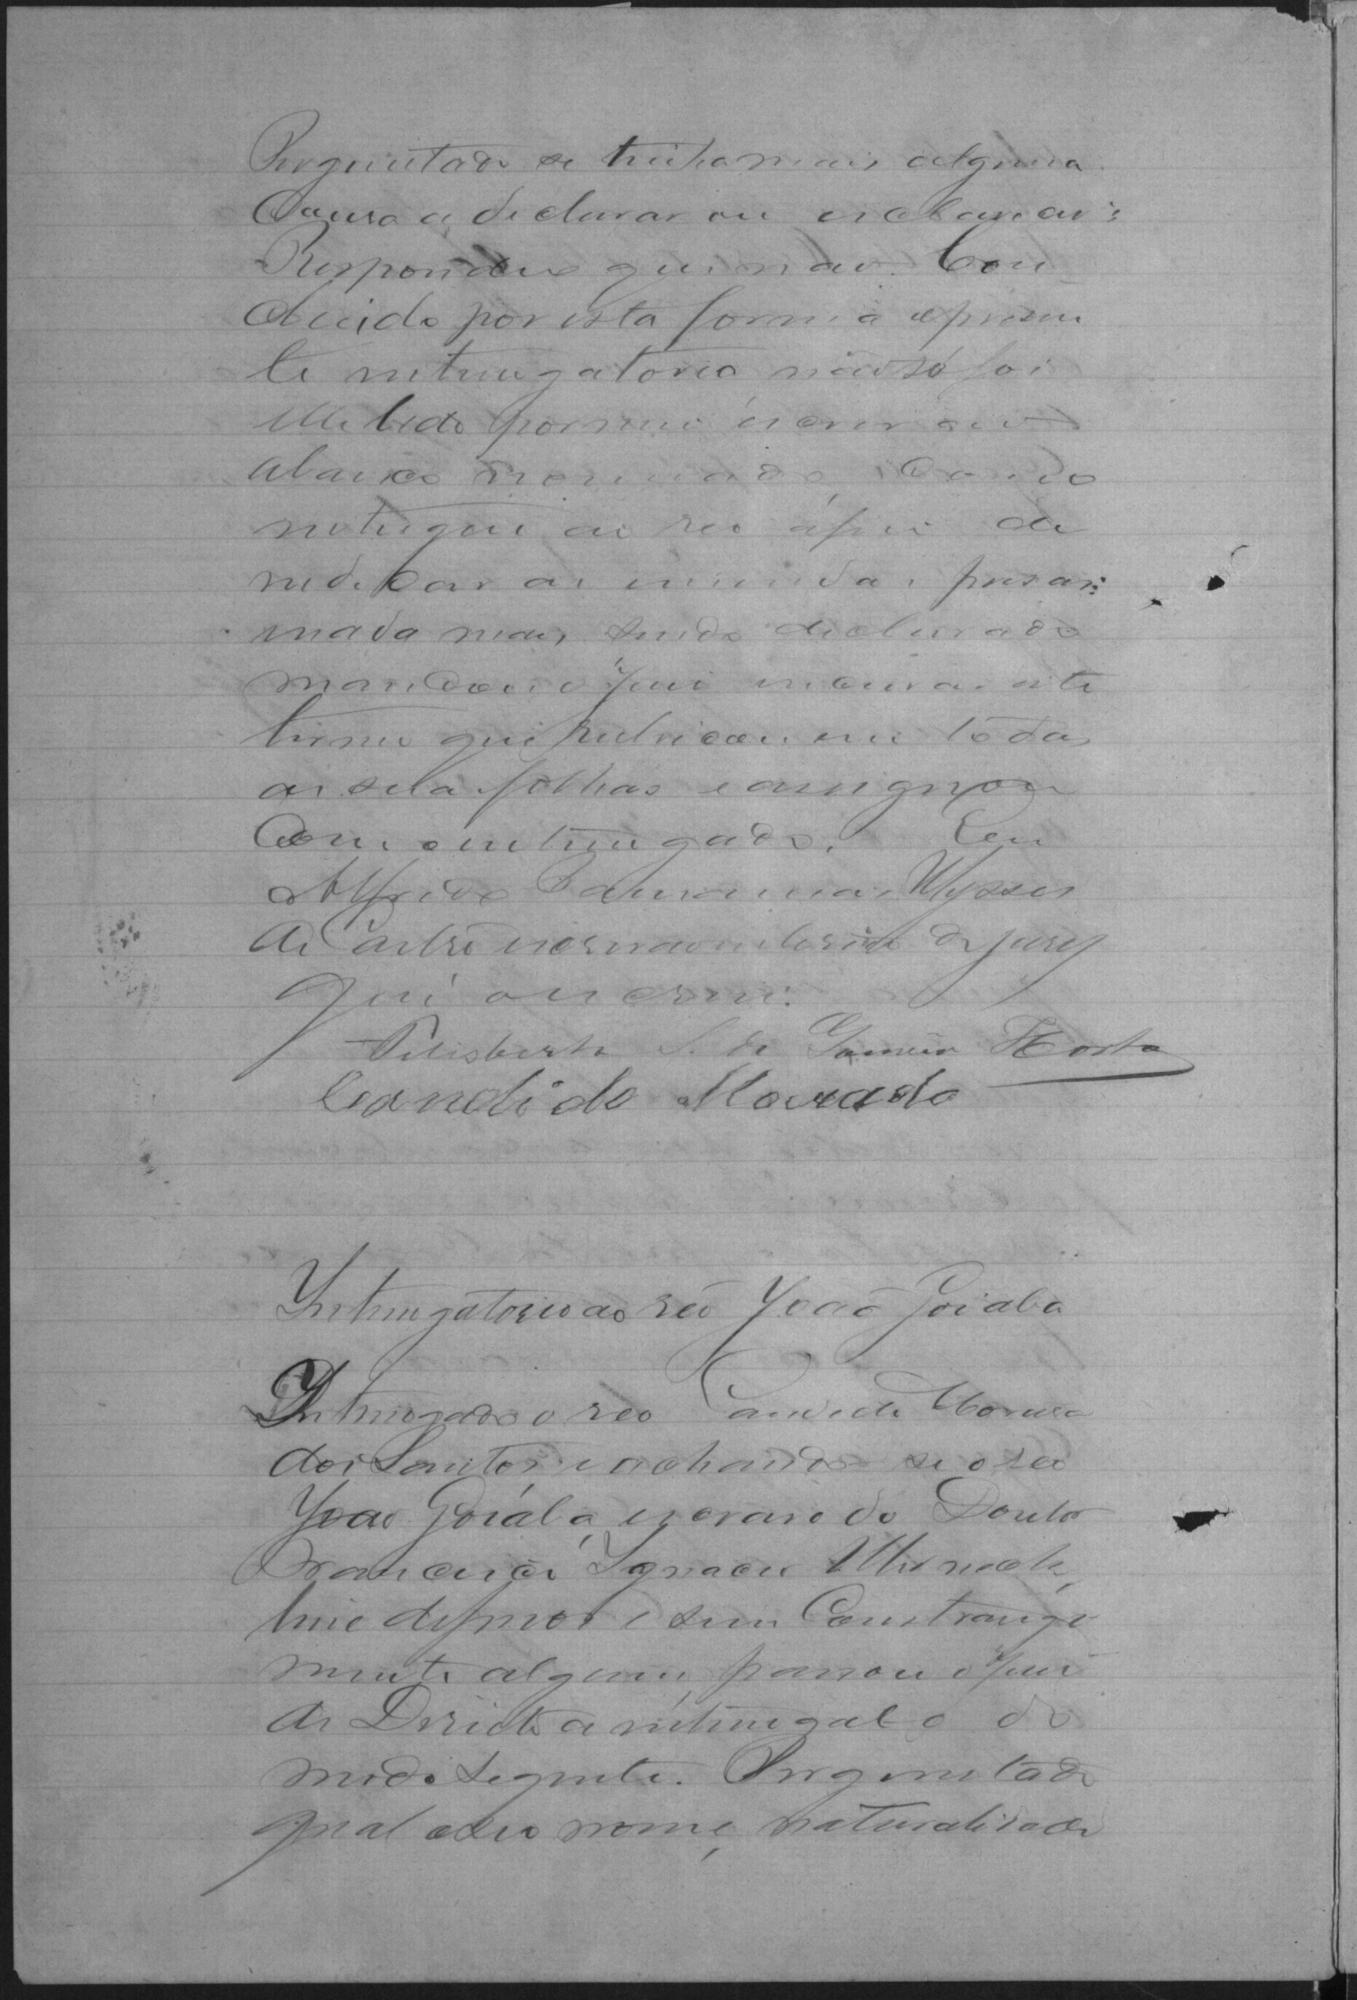 Perguntado se tinha mais alguma
Cousa a declarar ou esclarecer:
Respondeu que não. Con
cluido por esta forma o presen
te interrogatorio não só foi
elle lido por mim escrivão
abaixo nomeado, como
entregue ao reo afim de
indicar as emendas precisas:
nada mais sendo declarado
mandou o Juiz encerrar este
termo que rubricou em todas
as suas folhas e assignou
Com o interrogado. Eu
Alfredo Ulysses
de Castro escrivão interino do jury
que o escrevi.
Felisberto S. de Gomeiro Horta
Candido Morado
Interrogatorio ao reo João Goiaba
Interrogado o reo Candido Moreira
dos Santos e achando se o reo
João Goiaba, escravo do Doutor
Francisco Ignacio Werneck,
livre de ferros e sem Constrangi
mento algum, passou o Juiz
de Direito a interrogal o do
modo seguinte. Perguntado
qual o seu nome, naturalidade